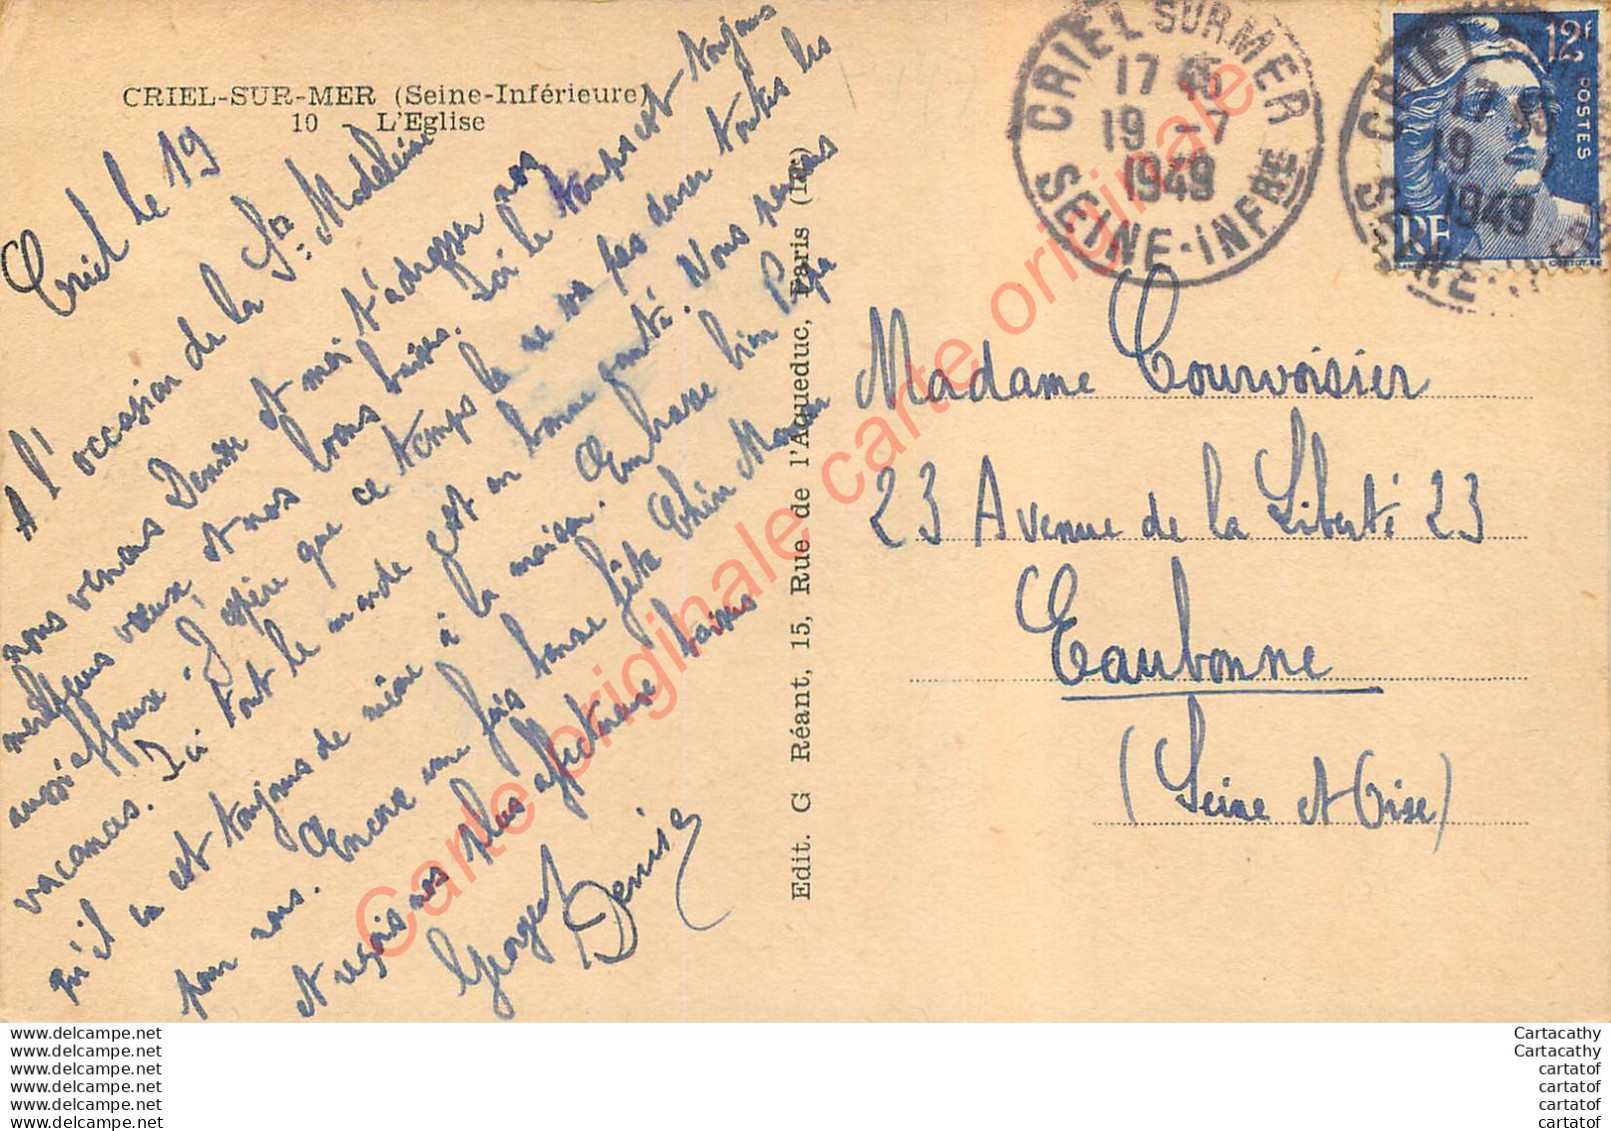 CRIEL-SUR-MER (Seine-Inférieure)
10 - L'Eglise
Criel le 19
A l'occasion de la Ste Madeleine
nous venons Denise et moi t'adresser nos
meilleurs vœux et nos bons baisers. Ici le temps est toujours
aussi affreux. J'espère que ce temps là ne va pas durer toutes les
vacances. Ici tout le monde est en bonne santé. Nous pensons
qu'il en est toujours de même à la maison. Embrasse bien Papa
pour nous. Encore une fois bonne fête Chère Maman
et reçois nos plus affectueux baisers
Georges et Denise
Edit. G Réant, 15, Rue de l'Aqueduc, Paris
CRIEL SUR MER
17 45
19 -7
1949
SEINE-INFRE
12F
POSTES
RF
CRIEL
19 -7
1949
Madame Courvoisier
23 Avenue de la Liberté 23
Eaubonne
(Seine et Oise)
Carte originale carte originale Carte originale carte originale
www.delcampe.net
www.delcampe.net
www.delcampe.net
www.delcampe.net
www.delcampe.net
www.delcampe.net
Cartacathy
Cartacathy
cartatof
cartatof
cartatof
cartatof